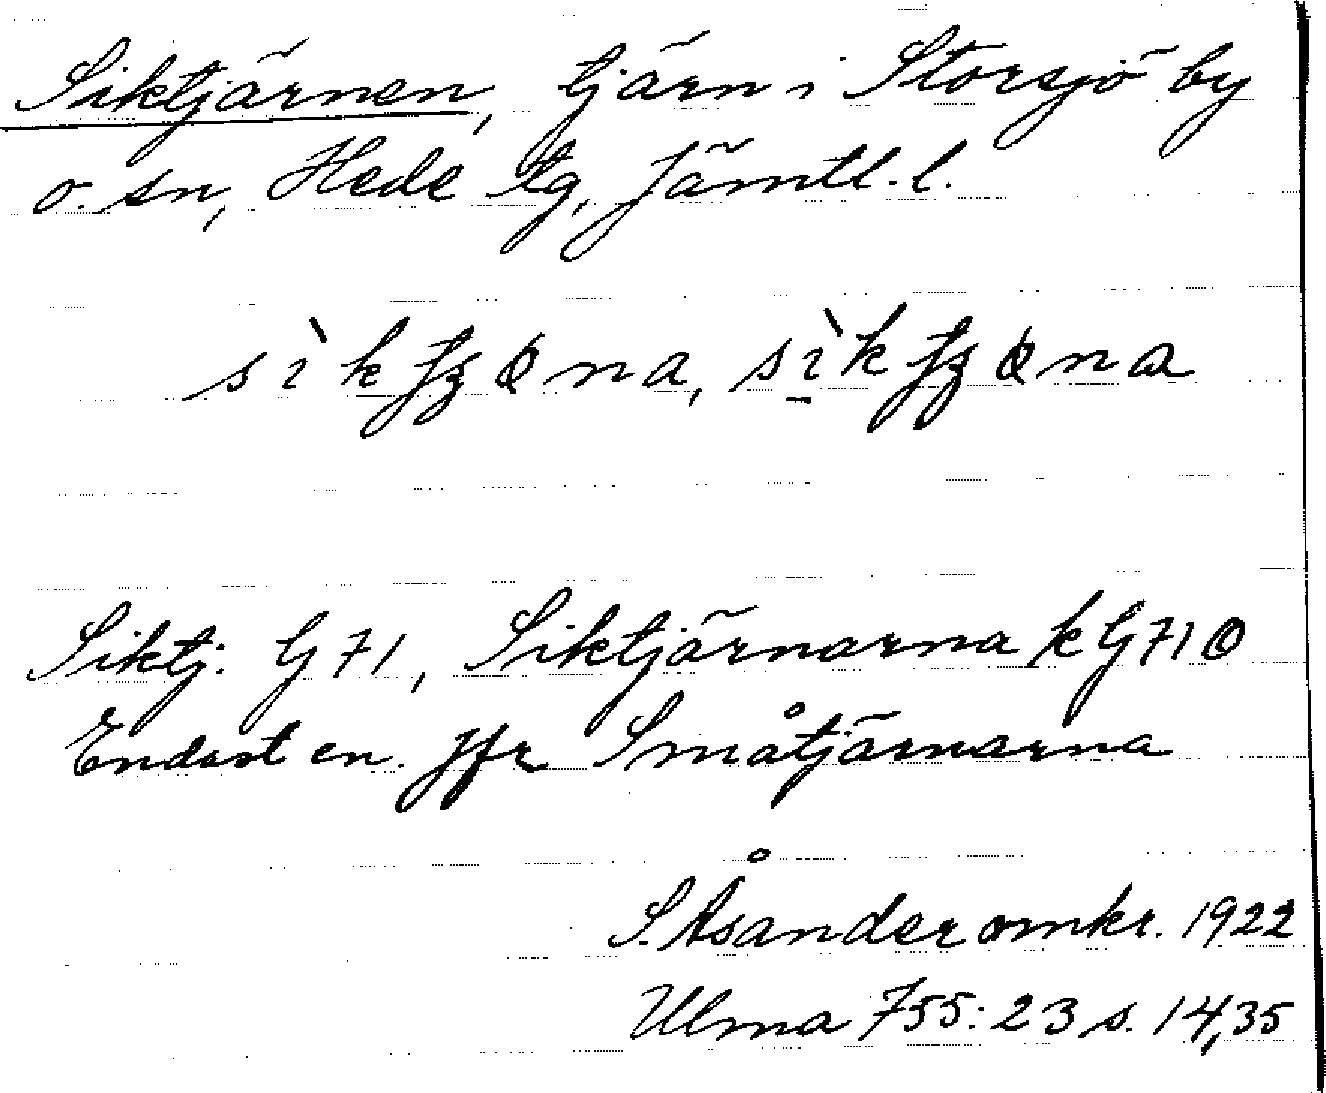 Siktjärnen, tjärn i Storsjö by
o. sn, Hede tg, Jämtl. l.
Siktj. G 71, Siktjärnarna k G 71 Ö
Endast en. Jfr Småtjärnarna
S. Åsander omkr. 1922
Ulma 755:23 s. 14,35